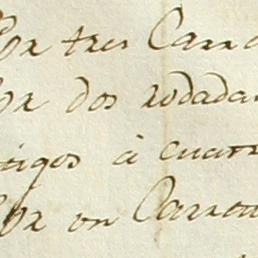 Por tres Carro
Por dos rodadas
tigos à cuatr
Por un Carrou